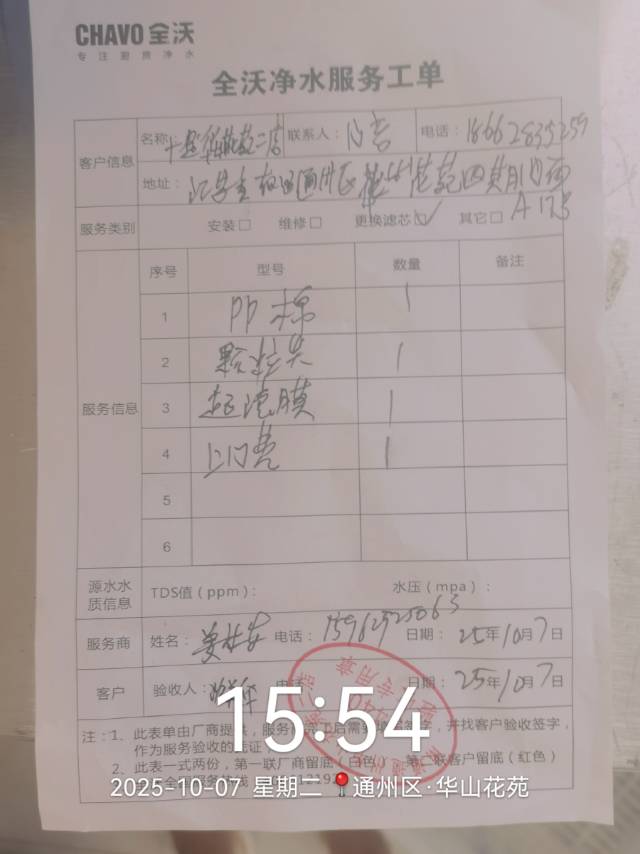 CHAVO 全沃
专注厨房净水
全沃净水服务工单
客户信息 名称 联系人： 电话：18662835259
地址：
A125
服务类别 安装□ 维修□ 更换滤芯☑ 其它□
服务信息 序号 型号 数量 备注
1 PP棉 1
2 颗粒炭 1
3 超滤膜 1
4 上门费 1
5
6
源水水质信息 TDS值（ppm）： 水压（mpa）：
服务商 姓名： 电话：15962925063 日期：25年10月7日
客户 验收人： 日期：25年10月7日
15:54
注：1、此表单由厂商提供，服务商完工后需要客户签字，并找客户验收签字，
作为服务验收的凭证
2、此表一式两份，第一联厂商留底（白色） 第二联客户留底（红色）
2025-10-07 星期二 通州区·华山花苑